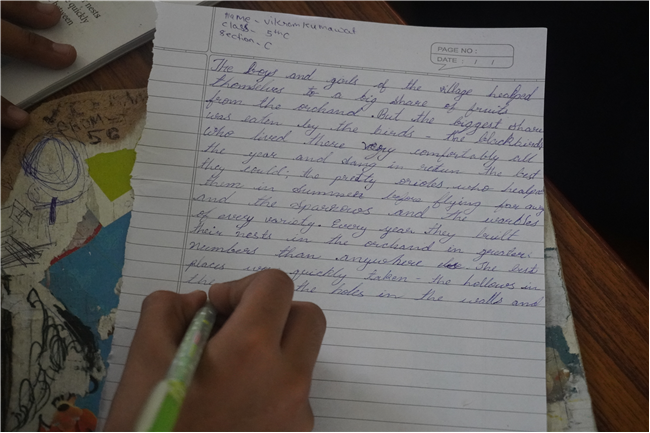 nests
quickly
name - vikram kumawat
class - 5th C
section - C
PAGE NO :
DATE : / /
5C
The boys and gals of the village healped
themselves to a big share of fruits
from the orchand. But the biggest share
was eaten by the birds - the blackbirds
who lived there very comfortably all
the year and sang in retun the best
they could; the pretty orioles who healped
them in summer
and the sparrows and the warbles
of every variety. Every year they built
their nests in the orchand in greater
numbers than anywhere else. The best
places were quickly taken - the hollows in
the holes in the walls and